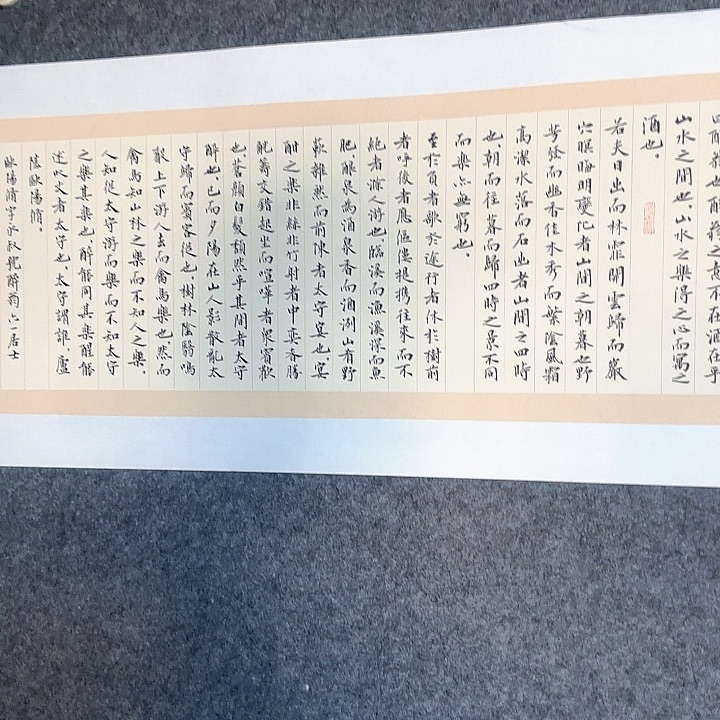 曰醉翁也醉翁之意不在酒在乎
山水之間也。山水之樂得之心而寓之
酒也。
若夫日出而林霏開雲歸而巖
穴暝晦明變化者山間之朝暮也野
芳發而幽香佳木秀而繁陰風霜
高潔水落而石出者山間之四時
也，朝而往暮而歸四時之景不同
而樂亦無窮也。
至於負者歌於途行者休於樹前
者呼後者應傴僂提攜往來而不
絕者滁人游也，臨溪而漁溪深而魚
肥，釀泉為酒泉香而酒洌山肴野
蔌雜然而前陳者太守宴也，宴
酣之樂非絲非竹射者中奕者勝
觥籌交錯起坐而喧嘩者衆賓歡
也，蒼顏白髮頹然乎其間者太守
醉也已而夕陽在山人影散亂太
守歸而賓客從也，樹林陰翳鳴
聲上下游人去而禽鳥樂也，然而
禽鳥知山林之樂而不知人之樂，
人知從太守游而樂而不知太守
之樂其樂也，醉能同其樂醒能
述以文者太守也，太守謂誰，廬
陵歐陽脩。
歐陽脩字永叔號醉翁六一居士